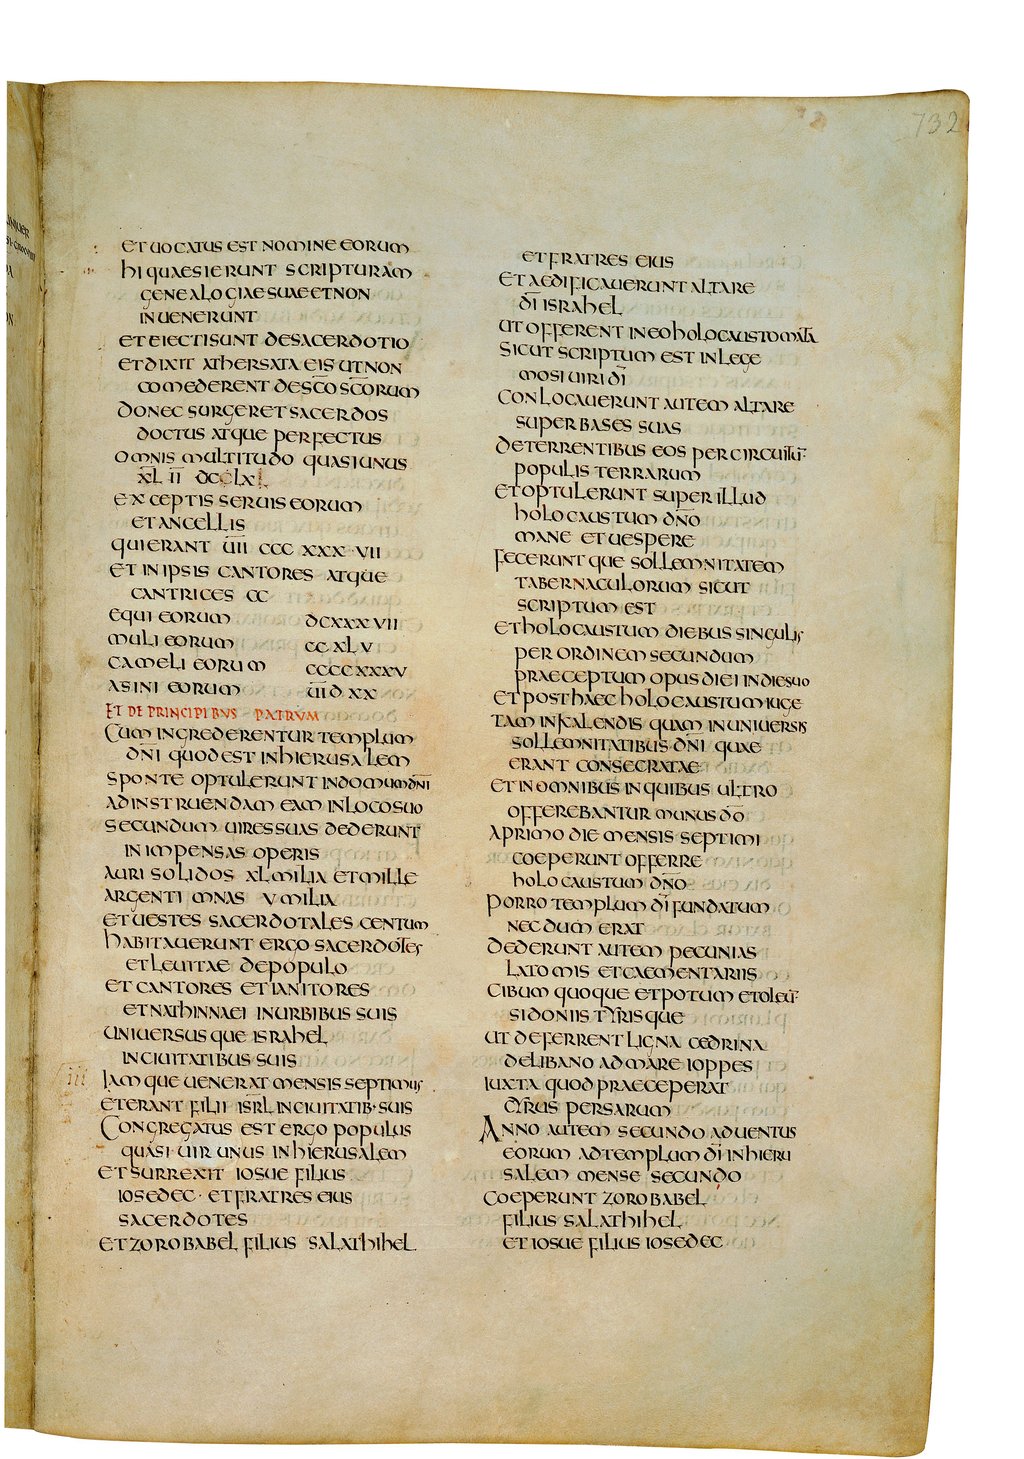 732
ET UOCATUS EST NOMINE EORUM
HI QUAESIERUNT SCRIPTURAM
GENEALOGIAE SUAE ET NON
INUENERUNT
ET EIECTI SUNT DE SACERDOTIO
ET DIXIT ATHERSATA EIS UT NON
COMEDERENT DE SC̄O SC̄ORUM
DONEC SURGERET SACERDOS
DOCTUS ATQUE PERFECTUS
OMNIS MULTITUDO QUASI UNUS
X̄L̄ ĪĪ DCCLX
EXCEPTIS SERUIS EORUM
ET ANCELLIS
QUI ERANT ŪĪĪ CCC XXX VII
ET IN IPSIS CANTORES ATQUE
CANTRICES CC
EQUI EORUM DCXXXVII
MULI EORUM CCXLV
CAMELI EORUM CCCCXXXV
ASINI EORUM ŪĪDXX
ET DE PRINCIPIBUS PATRUM
CUM INGREDERENTUR TEMPLUM
DN̄I QUOD EST IN HIERUSALEM
SPONTE OPTULERUNT IN DOMUM DN̄I
AD INSTRUENDAM EAM IN LOCO SUO
SECUNDUM UIRES SUAS DEDERUNT
IN IMPENSAS OPERIS
AURI SOLIDOS XL MILIA ET MILLE
ARGENTI MNAS V MILIA
ET UESTES SACERDOTALES CENTUM
HABITAUERUNT ERGO SACERDOTES
ET LEUITAE DE POPULO
ET CANTORES ET IANITORES
ET NATHINNAEI IN URBIBUS SUIS
UNIUERSUSQUE ISRAHEL
IN CIUITATIBUS SUIS
III IAMQUE UENERAT MENSIS SEPTIMUS
ET ERANT FILII ISR̄L IN CIUITATIB· SUIS
CONGREGATUS EST ERGO POPULUS
QUASI UIR UNUS IN HIERUSALEM
ET SURREXIT IOSUE FILIUS
IOSEDEC · ET FRATRES EIUS
SACERDOTES
ET ZOROBABEL FILIUS SALATHIHEL
ET FRATRES EIUS
ET AEDIFICAUERUNT ALTARE
DĪ ISRAHEL
UT OFFERENT IN EO HOLOCAUSTOMATA
SICUT SCRIPTUM EST IN LEGE
MOSI UIRI DĪ
CONLOCAUERUNT AUTEM ALTARE
SUPER BASES SUAS
DETERRENTIBUS EOS PER CIRCUITU̅
POPULIS TERRARUM
ET OPTULERUNT SUPER ILLUD
HOLOCAUSTUM DN̄O
MANE ET UESPERE
FECERUNTQUE SOLLEMNITATEM
TABERNACULORUM SICUT
SCRIPTUM EST
ET HOLOCAUSTUM DIEBUS SINGULIS
PER ORDINEM SECUNDUM
PRAECEPTUM OPUS DIEI IN DIE SUO
ET POST HAEC HOLOCAUSTUM IUGE
TAM IN KALENDIS QUAM IN UNIUERSIS
SOLLEMNITATIBUS DN̄I QUAE
ERANT CONSECRATAE
ET IN OMNIBUS IN QUIBUS ULTRO
OFFEREBANTUR MUNUS DŌ
A PRIMO DIE MENSIS SEPTIMI
COEPERUNT OFFERRE
HOLOCAUSTUM DN̄O
PORRO TEMPLUM DĪ FUNDATUM
NECDUM ERAT
DEDERUNT AUTEM PECUNIAS
LATOMIS ET CAEMENTARIIS
CIBUM QUOQUE ET POTUM ET OLEU̅
SIDONIIS TYRISQUE
UT DEFERRENT LIGNA CEDRINA
DE LIBANO AD MARE IOPPES
IUXTA QUOD PRAECEPERAT
CYRUS PERSARUM
ANNO AUTEM SECUNDO ADUENTUS
EORUM AD TEMPLUM DĪ IN HIERU
SALEM MENSE SECUNDO
COEPERUNT ZOROBABEL
FILIUS SALATHIHEL
ET IOSUE FILIUS IOSEDEC